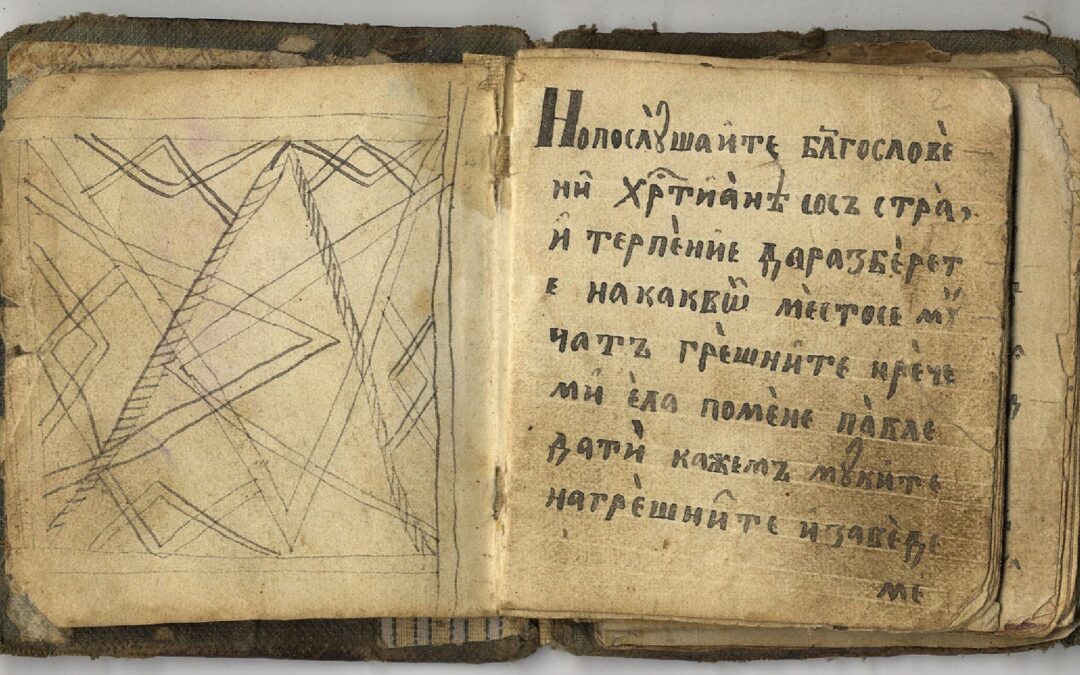 Нопослꙋшайте бл҃гослове
ни хрⷭ҇тиѧ̀нѣ сосъ стра̀х
и҆ терпѐние даразбѐрет
е накаквѡ̀ мѐстосе мꙋ
чатъ грѐшните ирѐче
мѝ ѐла помѐне па̀вле
дати̏ кажемъ мꙋките
нагрѐшните изавѐде
ме